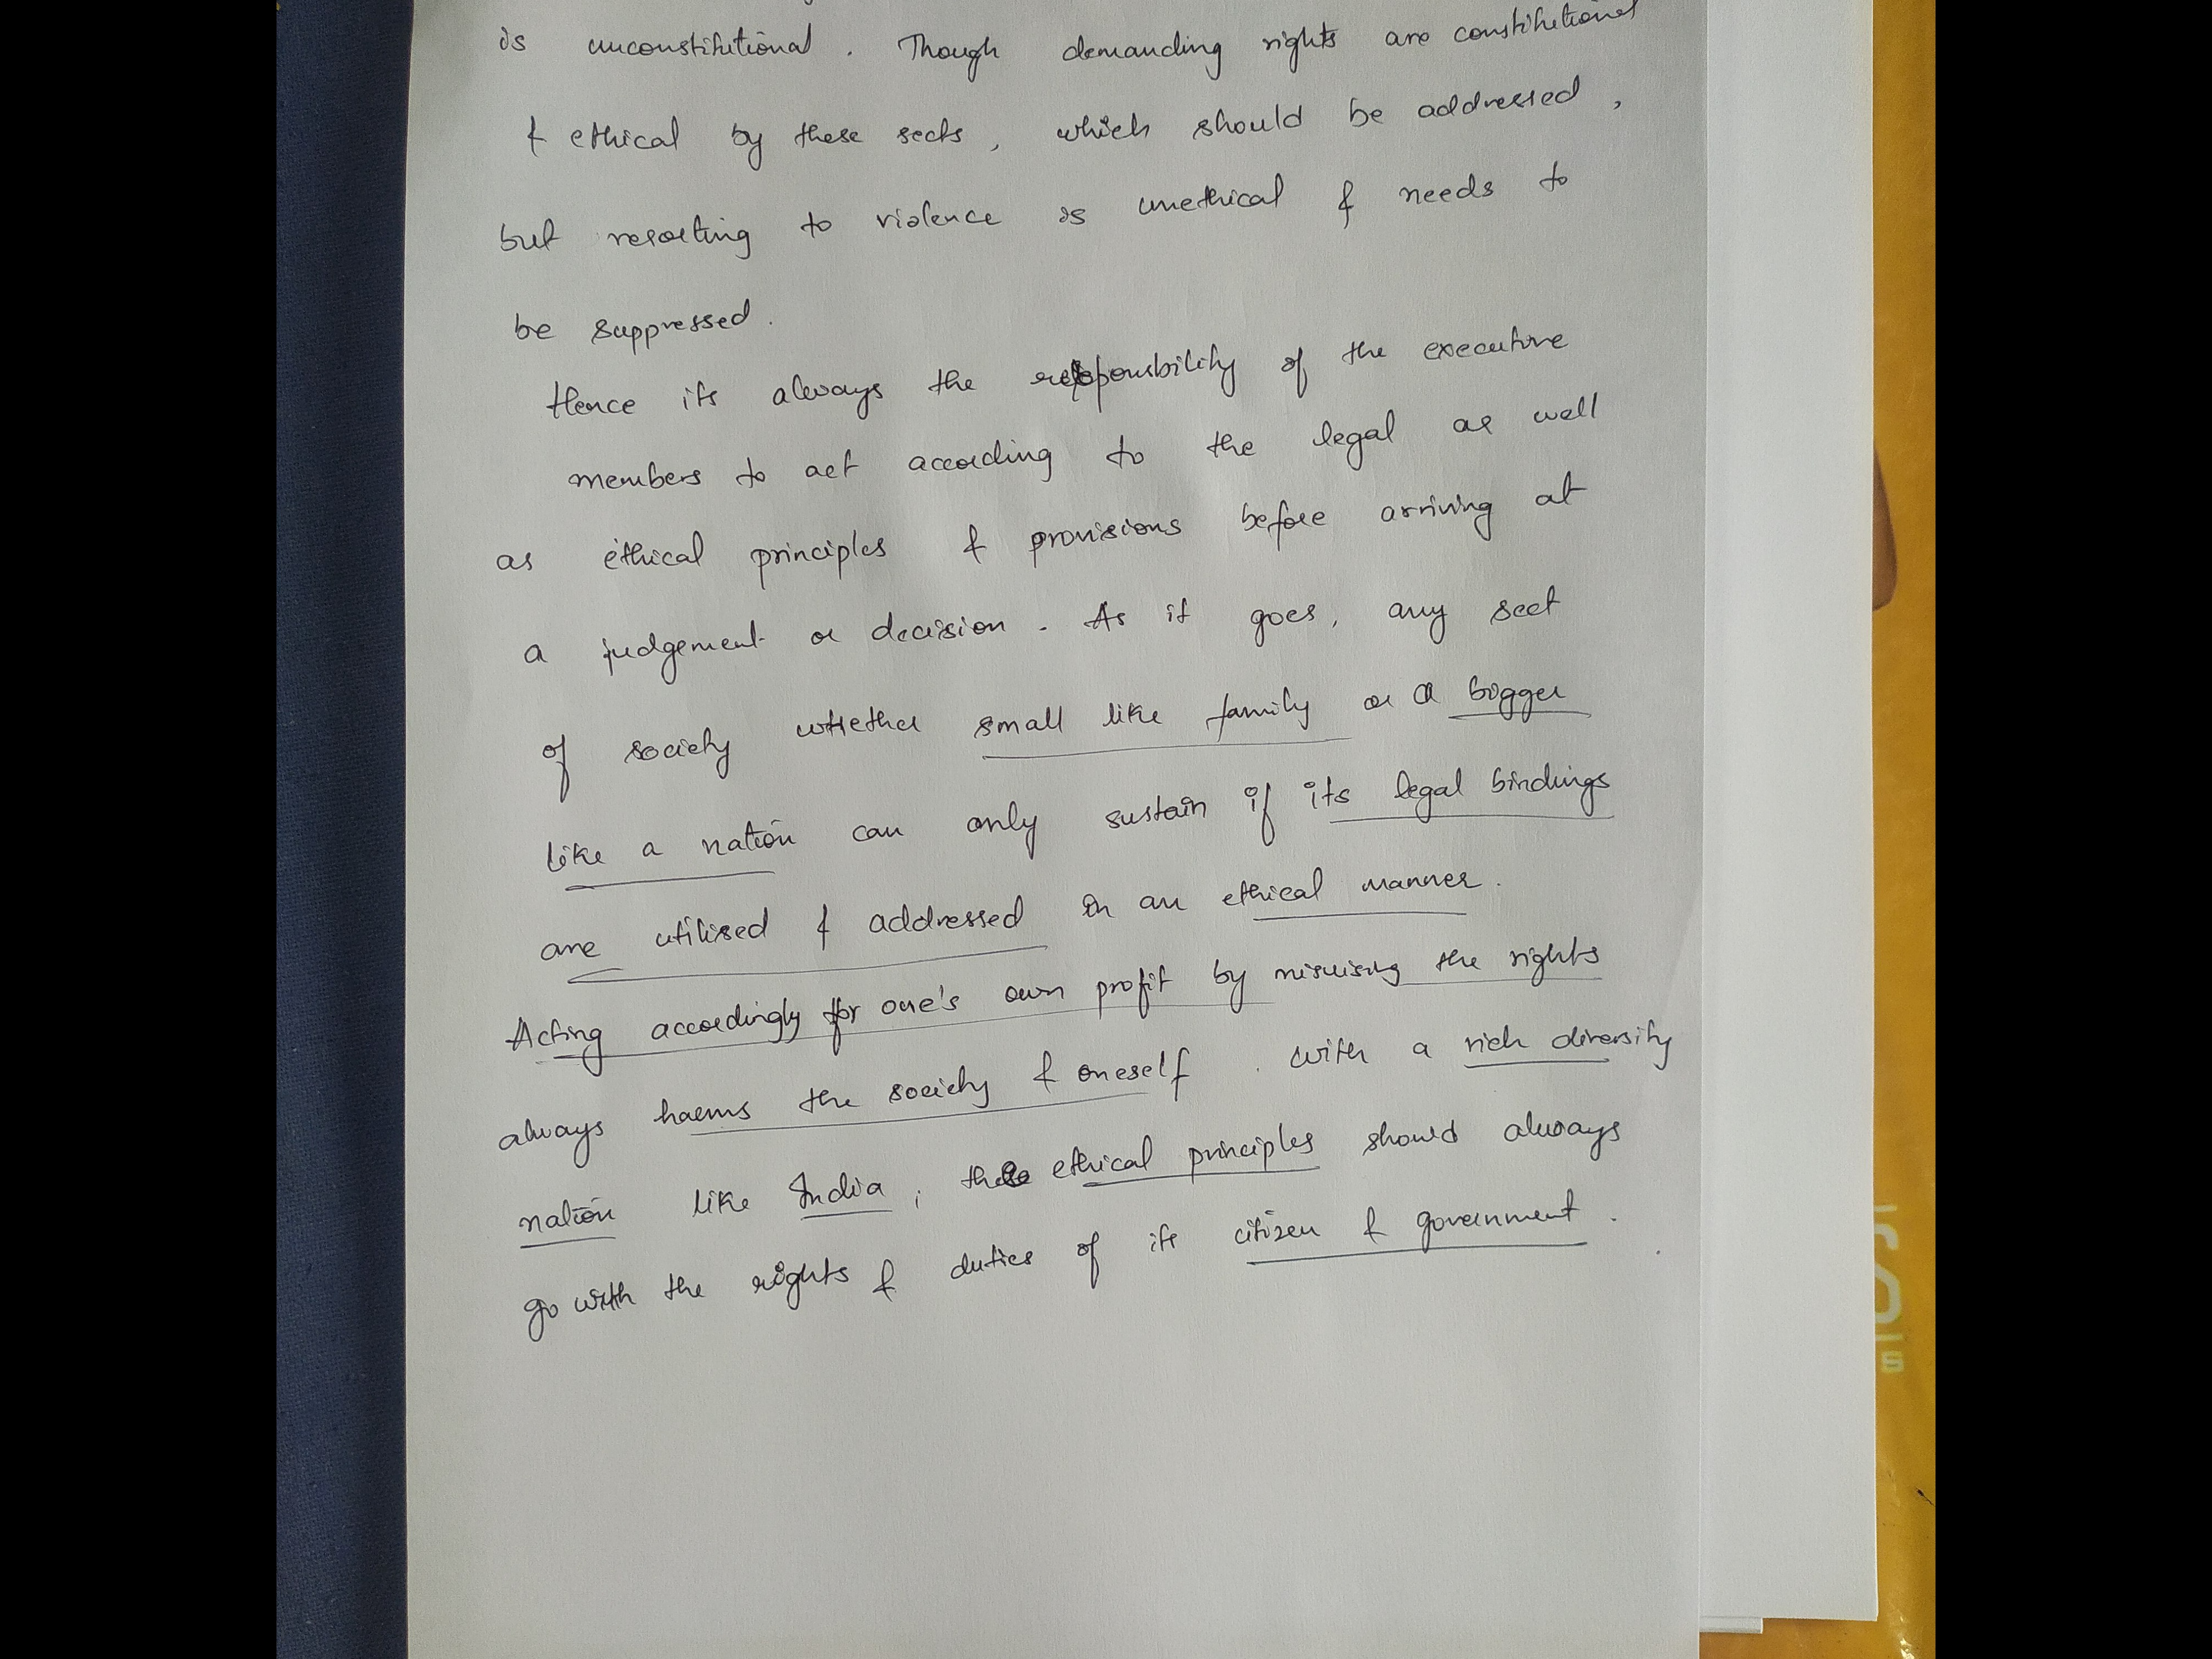 is unconstitutional. Though demanding rights are constitutional
& ethical by these sects, which should be addressed,
but resorting to violence is unethical & needs to
be suppressed.
Hence its always the responsbility of the executive
members to act according to the legal as well
as ethical principles & provisions before arriving at
a judgement or decision. As it goes, any sect
of society whether small like family or a bigger
like a nation can only sustain if its legal bindings
are utilised & addressed in an ethical manner.
Acting accordingly for one's own profit by misusing the rights
always harms the society & oneself. with a rich diversity
nation like India, these ethical principles should always
go with the rights & duties of its citizen & government.